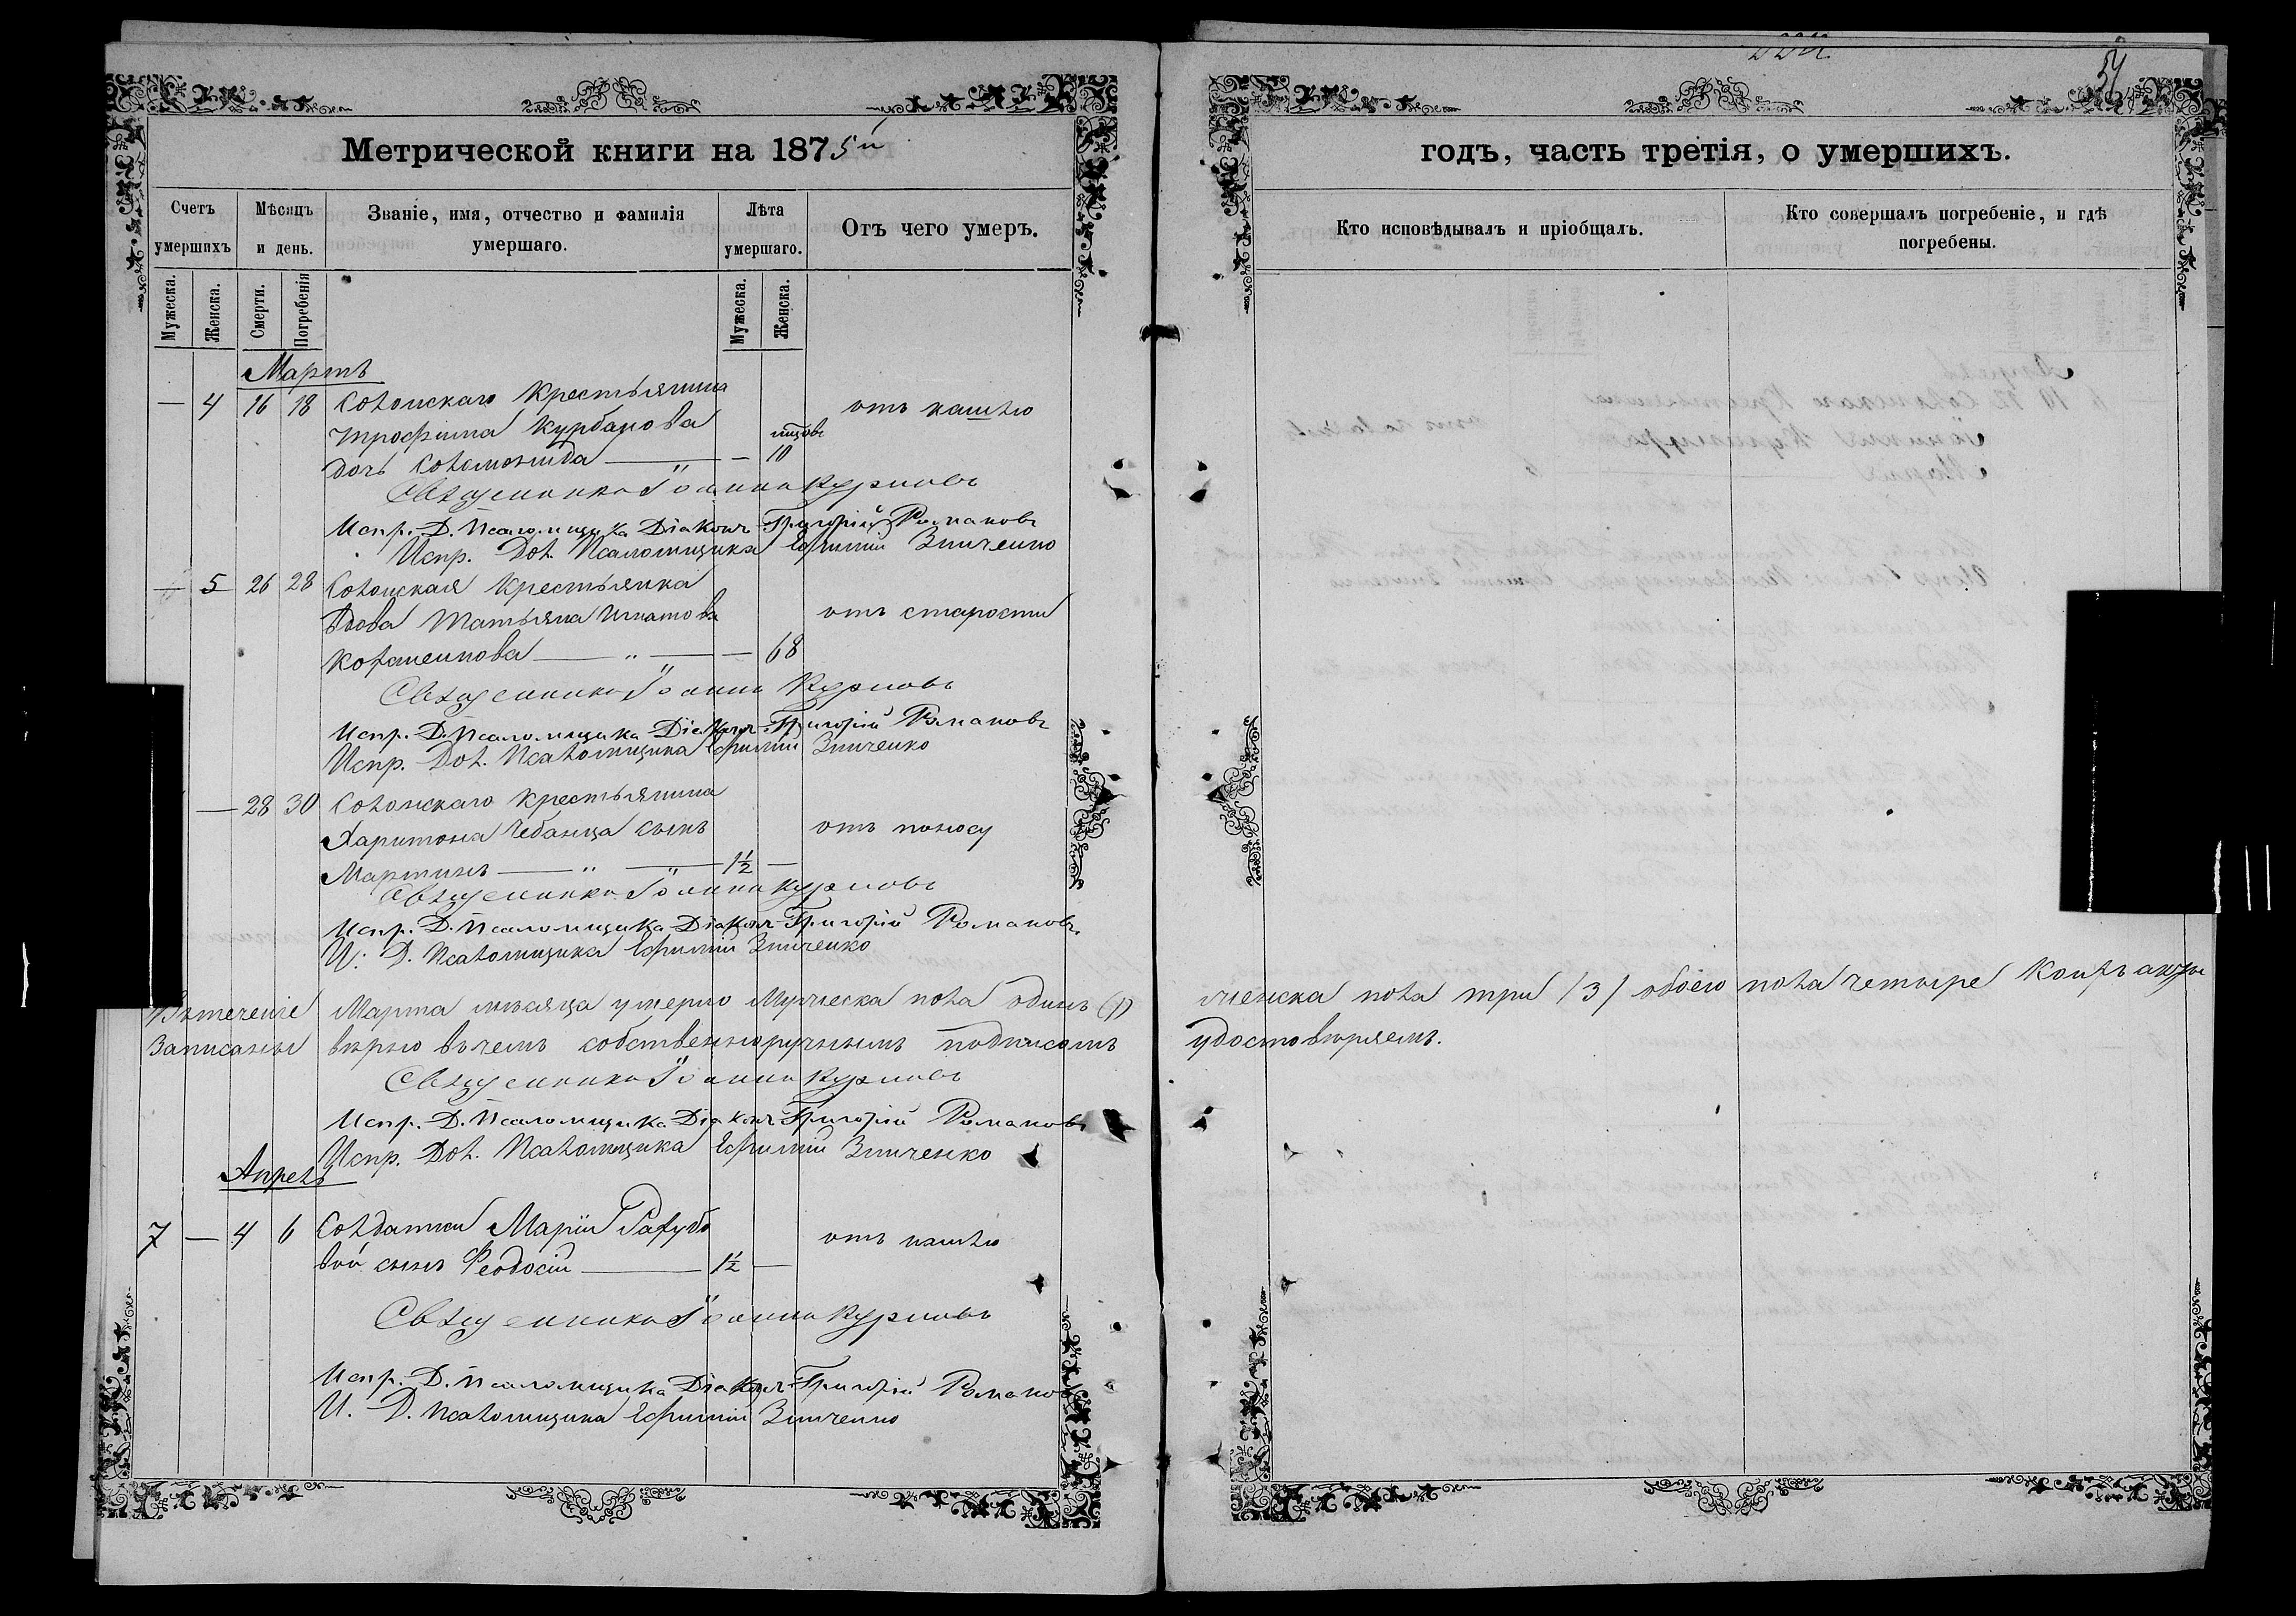 Метрической книги на 1875й
Счетъ умершихъ
Мѣсяцъ и день.
Званіе, имя, отчество и фамилія умершаго.
Лѣта умершаго.
Отъ чего умеръ.
Мужеска.
Женска.
Смерти.
Погребенія
Мужеска.
Женска.
Мартъ
— 4 16 18 Крестьянина отъ кашлю
Трофима Курбанова
дочь — 10
Священникъ Іоаннъ
Испр. Д. Псаломщика Діаконъ Григорій Романовъ
Испр. Дол. Псаломщика Ефимій Зинченко
— 5 26 28 Крестьянка
вдова Татьяна Игнатова отъ старости
— " — — 68
Священникъ Іоаннъ
Испр. Д. Псаломщика Діаконъ Григорій Романовъ
Испр. Дол. Псаломщика Ефимій Зинченко
— 28 30 Крестьянина
Харитона Чебанца сынъ отъ поносу
Мартинъ — " — " — 1½ —
Священникъ Іоаннъ
Испр. Д. Псаломщика Діаконъ Григорій Романовъ.
И. Д. Псаломщика Ефимій Зинченко
Втеченіе Марта мѣсяца умерло Мужеска пола одинъ (1)
Записаны вѣрно въ чемъ собственноручнымъ подписомъ
Священникъ Іоаннъ
Испр. Д. Псаломщика Діаконъ Григорій Романовъ
Испр. Дол. Псаломщика Ефимій Зинченко
Апрель
7 — 4 6 Солдатки Маріи отъ кашлю
вой сынъ Феодосій — 1½ —
Священникъ Іоаннъ
Испр. Д. Псаломщика Діаконъ Григорій Романо
И. Д. Псаломщика Ефимій Зинченко
годъ, часть третія, о умершихъ.
Кто исповѣдывалъ и пріобщалъ.
Кто совершалъ погребеніе, и гдѣ погребены.
женска пола три /3/ обоего пола четыре
удостовѣряемъ.